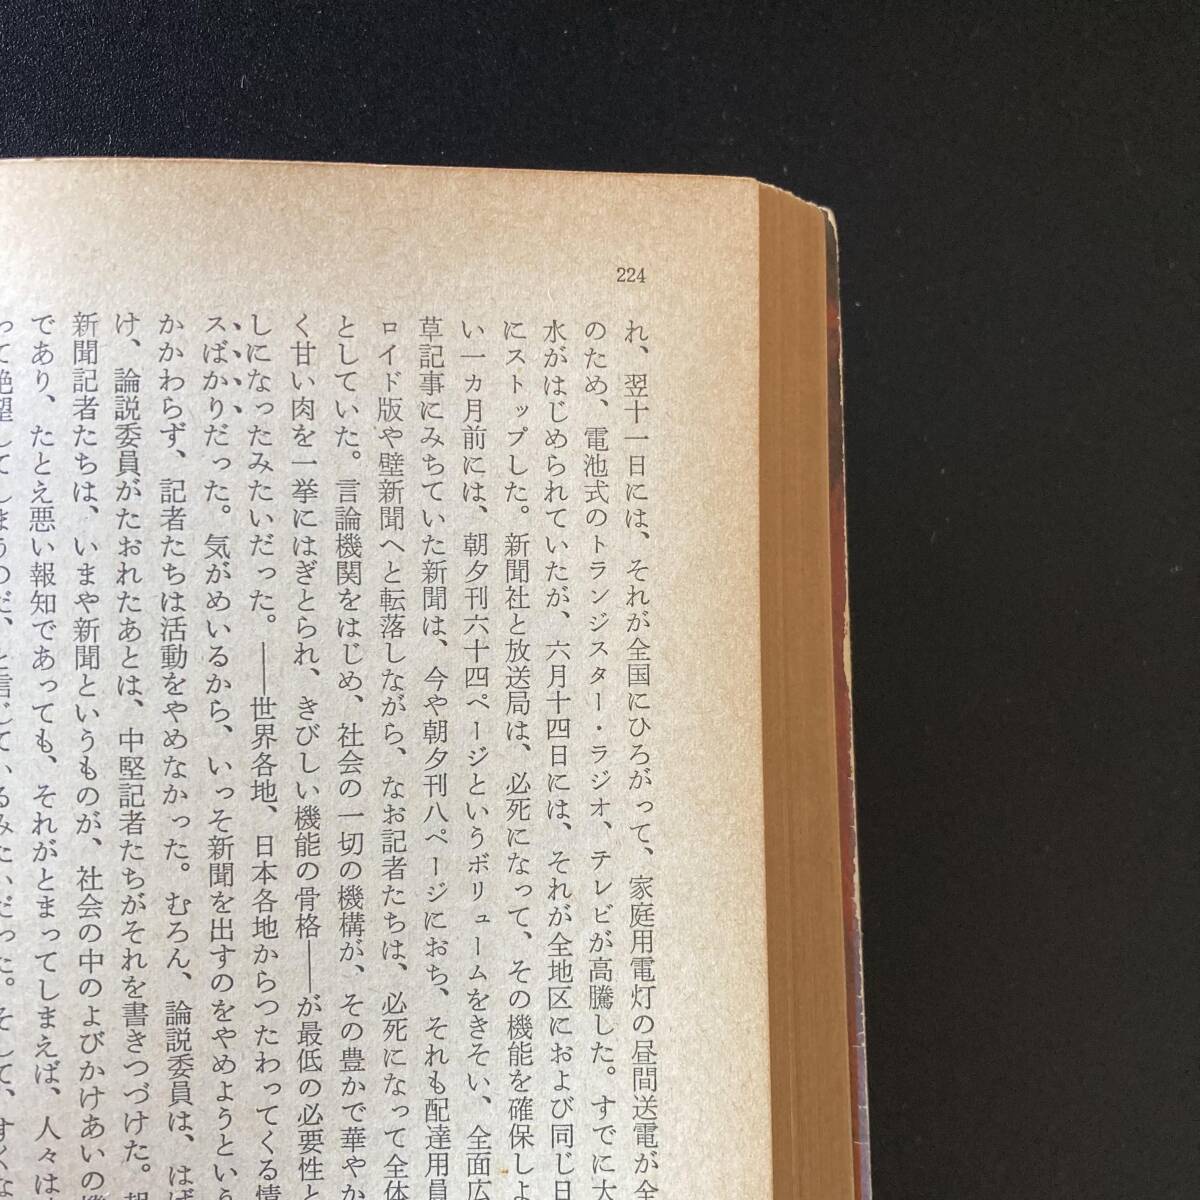 224
れ、翌十一日には、それが全国にひろがって、家庭用電灯の昼間送電が全
のため、電池式のトランジスター・ラジオ、テレビが高騰した。すでに大
水がはじめられていたが、六月十四日には、それが全地区におよび同じ日
にストップした。新聞社と放送局は、必死になって、その機能を確保しよ
い一カ月前には、朝夕刊六十四ページというボリュームをきそい、全面広
草記事にみちていた新聞は、今や朝夕刊八ページにおち、それも配達用員
ロイド版や壁新聞へと転落しながら、なお記者たちは、必死になって全体
としていた。言論機関をはじめ、社会の一切の機構が、その豊かで華やか
く甘い肉を一挙にはぎとられ、きびしい機能の骨格――が最低の必要性と
しになったみたいだった。――世界各地、日本各地からつたわってくる情
スばかりだった。気がめいるから、いっそ新聞を出すのをやめようという
かかわらず、記者たちは活動をやめなかった。むろん、論説委員は、はば
け、論説委員がたおれたあとは、中堅記者たちがそれを書きつづけた。
新聞記者たちは、いまや新聞というものが、社会の中のよびかけあいの
であり、たとえ悪い報知であっても、それがとまってしまえば、人々は
って絶望してしまうのだ、と信じているみたいだった。そして、すくな